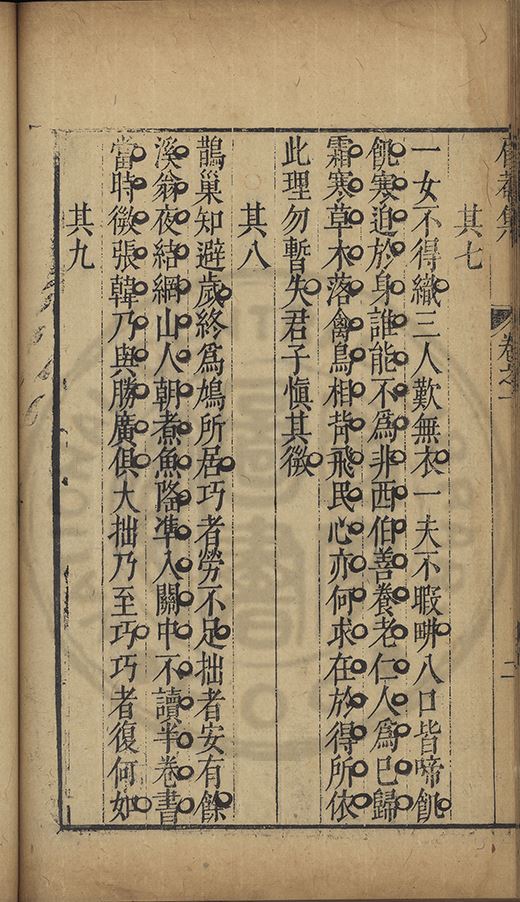 卷之一
二
其七
一女不得織三人歎無衣一夫不暇畊八口皆啼飢
飢寒迫於身誰能不爲非西伯善養老仁人爲已歸
霜寒草木落禽鳥相背飛民心亦何求在於得所依
此理勿暫失君子愼其微
其八
鵲巢知避歲終爲鳩所居巧者勞不足拙者安有餘
溪翁夜結網山人朝煮魚隆準入關中不讀半卷書
當時徵張韓乃與勝廣俱大拙乃至巧巧者復何如
其九